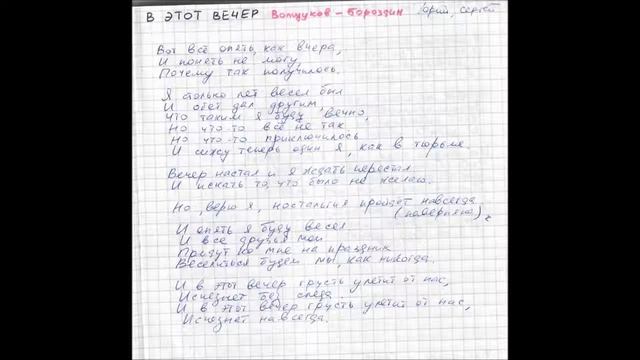 В ЭТОТ ВЕЧЕР Волщуков - Бороздин Юрий, Сергей
Вот всё опять, как вчера,
И понять не могу,
Почему так получилось.
Я столько лет весел был
И обет дал другим,
Что таким я буду вечно,
Но что-то всё не так
Но что-то приключилось
И сижу теперь один я, как в тюрьме.
Вечер настал и я ждать перестал
И искать то, что было не желаю.
Но, верю я, ностальгия пройдёт навсегда
(наверняка),
И опять я буду весел
И все друзья мои
Придут ко мне на праздник
Веселиться будем мы, как никогда.
И в этот вечер грусть улетит от нас,
Исчезнет без следа.
И в этот вечер грусть улетит от нас,
Исчезнет навсегда.